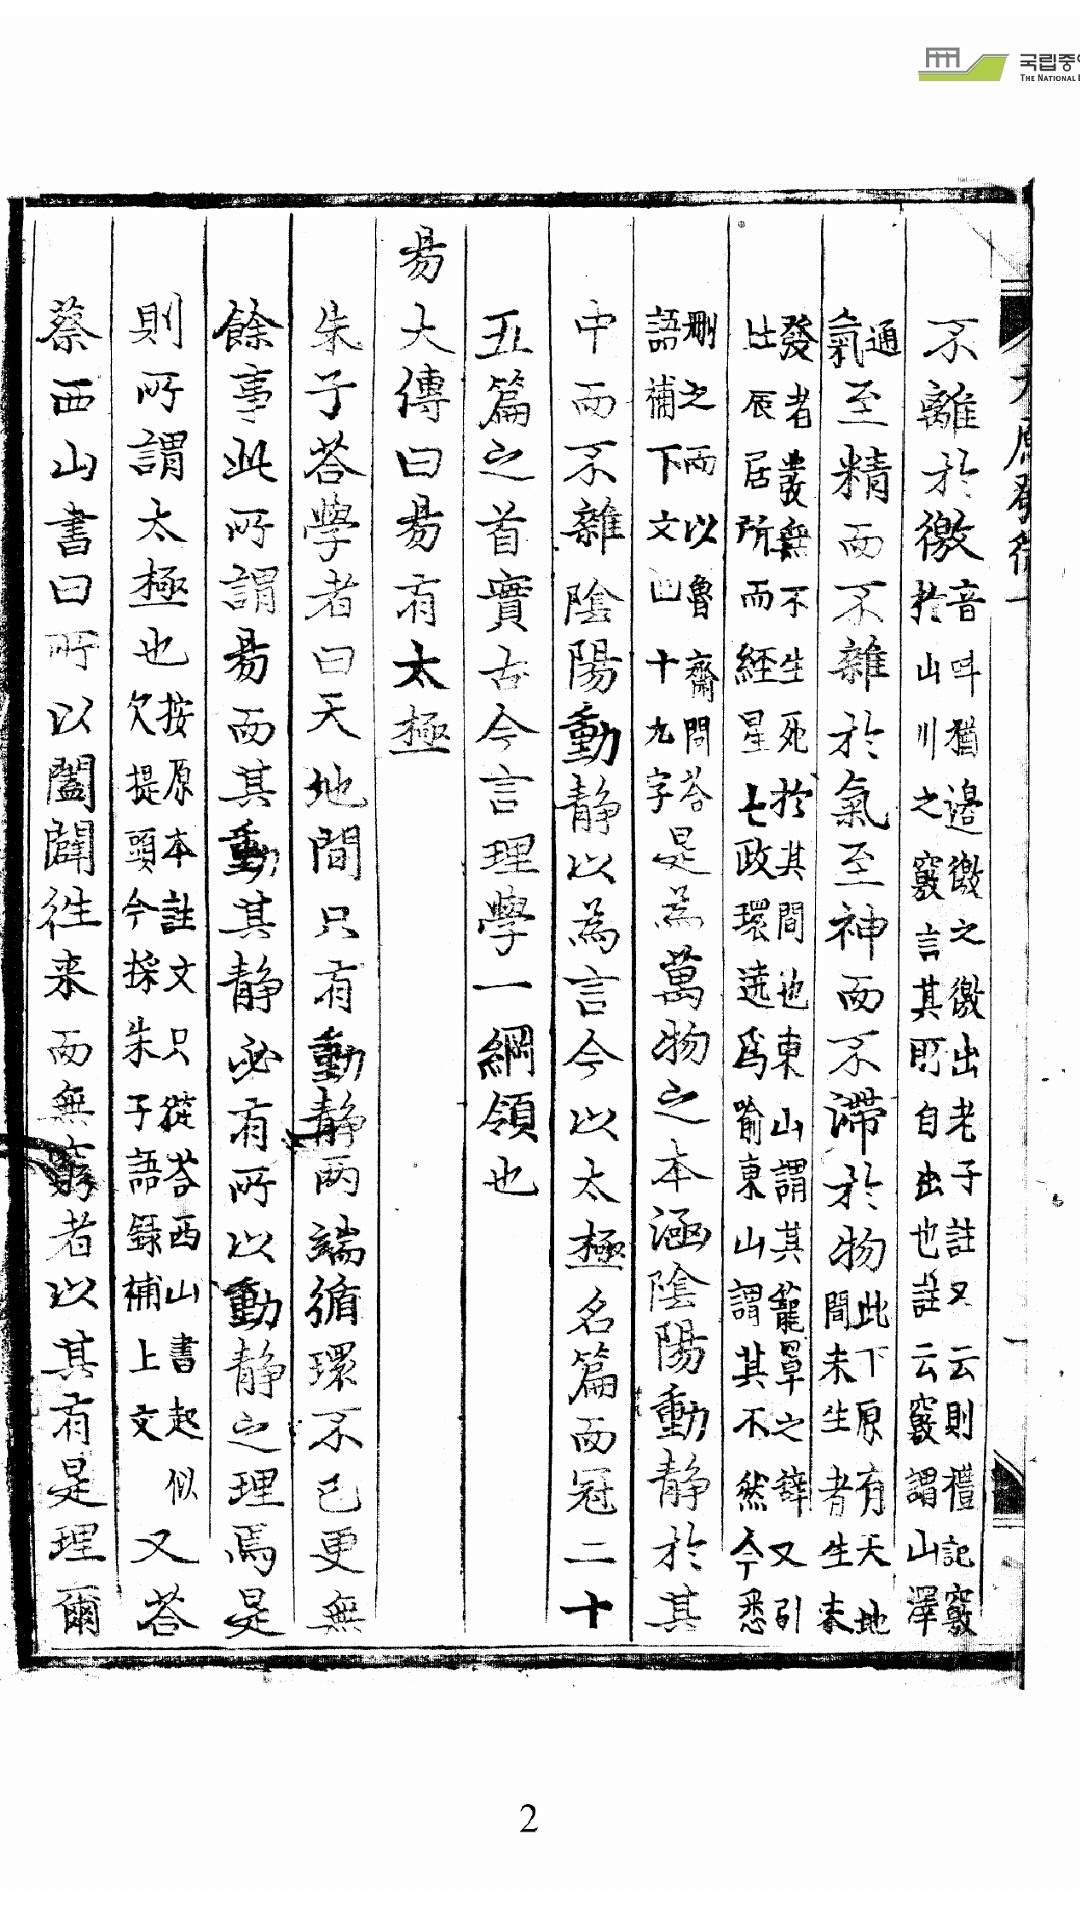 국립중
THE NATIONAL
不離於徼音呌猶邊徼之徼出老子註又云則禮記竅於山川之竅言其所自出也註云竅謂山澤
通氣至精而不雜於氣至神而不滯於物此下原有天地間未生者生未
發者發無不生死於其間也東山謂其籠罩之辭又引北辰居所而經星七政環遶爲喻東山謂其不然今悉
刪之而以魯齋問荅語補下文四十九字是為萬物之本涵陰陽動静於其
中而不雜陰陽動静以為言今以太極名篇而冠二十
五篇之首實古今言理學一綱領也
易大傳曰易有太極
朱子荅學者曰天地間只有動静两端循環不已更無
餘事此所謂易而其動其静必有所以動静之理焉是
則所謂太極也按原本註文只從荅西山書起似欠提頭今採朱子語録補上文又荅
蔡西山書曰所以闔闢徃来而無窮者以其有是理爾
2